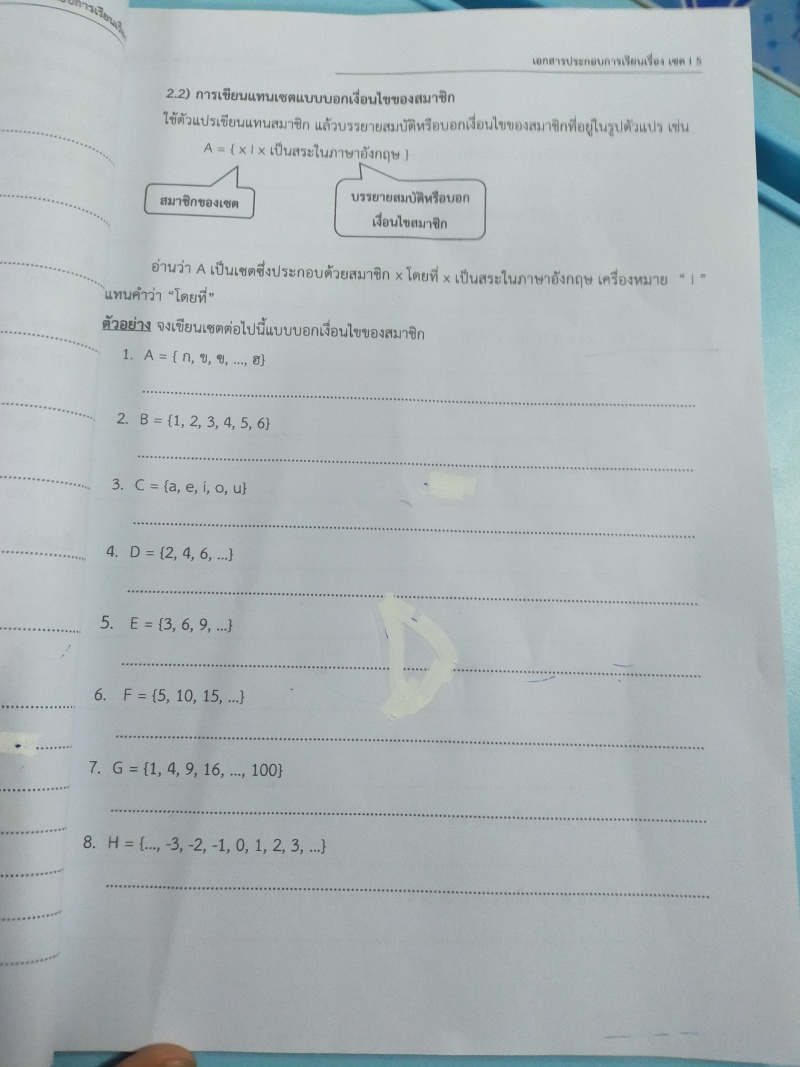 เอกสารประกอบการเรียนเรื่อง เซต | 5
2.2) การเขียนแทนเซตแบบบอกเงื่อนไขของสมาชิก
ใช้ตัวแปรเขียนแทนสมาชิก แล้วบรรยายสมบัติหรือบอกเงื่อนไขของสมาชิกที่อยู่ในรูปตัวแปร เช่น
A = { x | x เป็นสระในภาษาอังกฤษ }
สมาชิกของเซต
บรรยายสมบัติหรือบอก
เงื่อนไขสมาชิก
อ่านว่า A เป็นเซตซึ่งประกอบด้วยสมาชิก x โดยที่ x เป็นสระในภาษาอังกฤษ เครื่องหมาย “ | ”
แทนคำว่า “โดยที่”
ตัวอย่าง จงเขียนเซตต่อไปนี้แบบบอกเงื่อนไขของสมาชิก
1. A = { ก, ข, ฃ, ..., ฮ}
2. B = {1, 2, 3, 4, 5, 6}
3. C = {a, e, i, o, u}
4. D = {2, 4, 6, ...}
5. E = {3, 6, 9, ...}
6. F = {5, 10, 15, ...}
7. G = {1, 4, 9, 16, ..., 100}
8. H = {..., -3, -2, -1, 0, 1, 2, 3, ...}